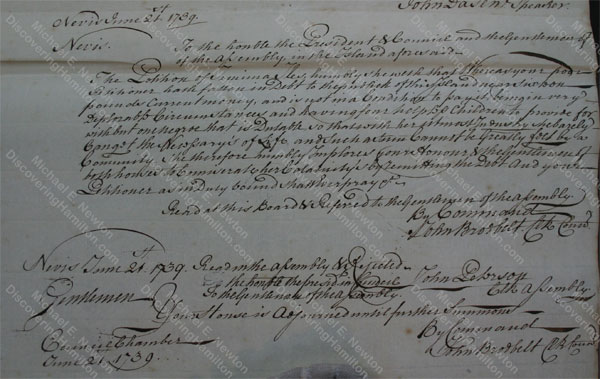 John Speaker.
Nevis June 21st 1739.
Nevis. To the honble the President & Council and the Gentlemen
of the Assembly, in the Island aforesaid.
The Petition of Jemima humbly sheweth that Whereas your poor
Petitioner hath fallen in Debt to the publick of this Island near
pounds Current money, and is not in a Condition to pay it being in very
deplorable Circumstances and having four helpless Children to provide for
with but one negroe that is Dutable so that with her utmost Industry she barely
the Necessarys of Life and such a Sum Cannot be Greatly felt by a
Community She therefore humbly Implores your Honours & the Gentlemen of
both houses to Commiserate her Calamitys by remitting the Debt and your
Petitioner as in Duty bound shall ever pray &c
Read at this Board & Referred to the Gentlemen of the Assembly
By Command
John Brodbelt Clk Council
Nevis June 21st 1739. Read in the Assembly & Rejected
To the honble the presidt in Council John Peterson
To the Gentlemen of the Assembly. Clk Assembly
Gentlemen
Your House is Adjourned until further Summons
By Command
Council Chamber John Brodbelt Clk Council
June 21st 1739.
Michael E. Newton
DiscoveringHamilton.com